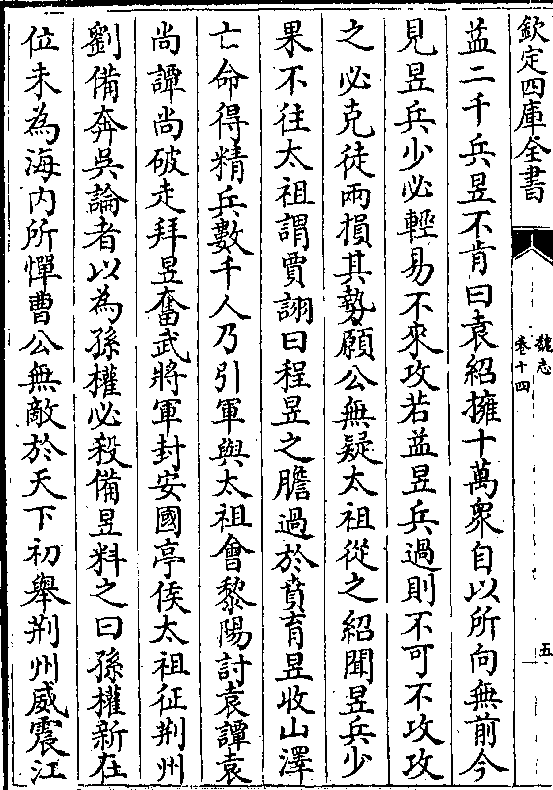 欽定四庫全書
魏志
卷十四
五
益二千兵昱不肯曰袁紹擁十萬衆自以所向無前今
見昱兵少必輕易不來攻若益昱兵過則不可不攻攻
之必克徒兩損其勢願公無疑太祖從之紹聞昱兵少
果不往太祖謂賈詡曰程昱之膽過於賁育昱收山澤
亡命得精兵數千人乃引軍與太祖會黎陽討袁譚袁
尚譚尚破走拜昱奮武將軍封安國亭侯太祖征荆州
劉備奔吳論者以為孫權必殺備昱料之曰孫權新在
位未為海内所憚曹公無敵於天下初舉荆州威震江